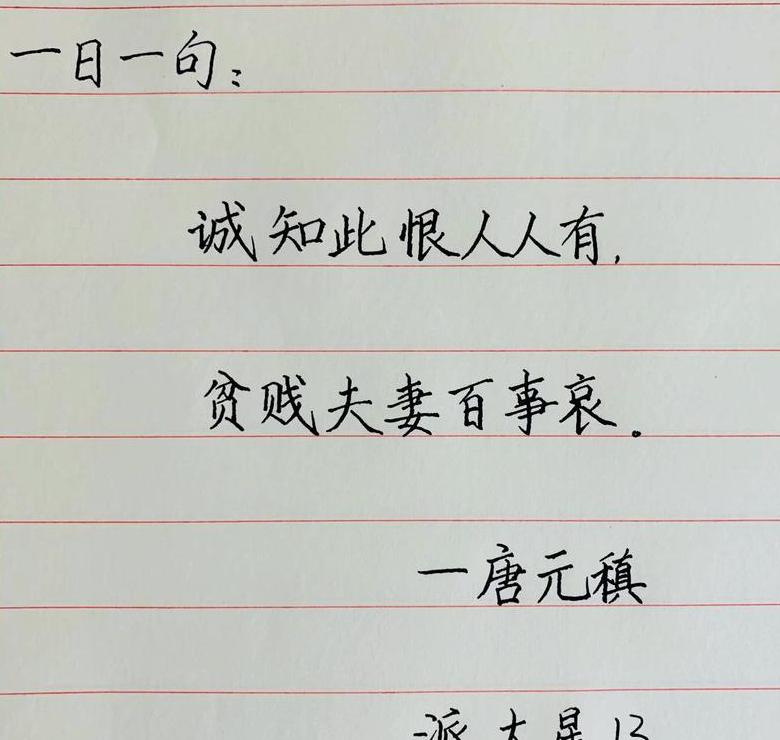 一日一句:
诚知此恨人人有,
贫贱夫妻百事哀.
—唐元稹
派大星13